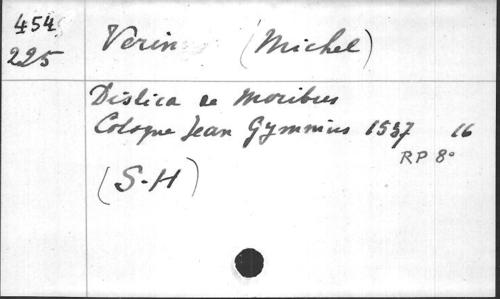 454
225
Verin (Michel)
Dislica de Moribus
Cologne Jean Gymnius 1537 16
RP 8°
(S-H)